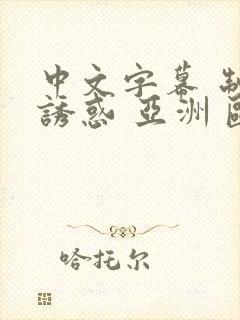 中文字幕 制
誘惑 亞洲
哈托尔